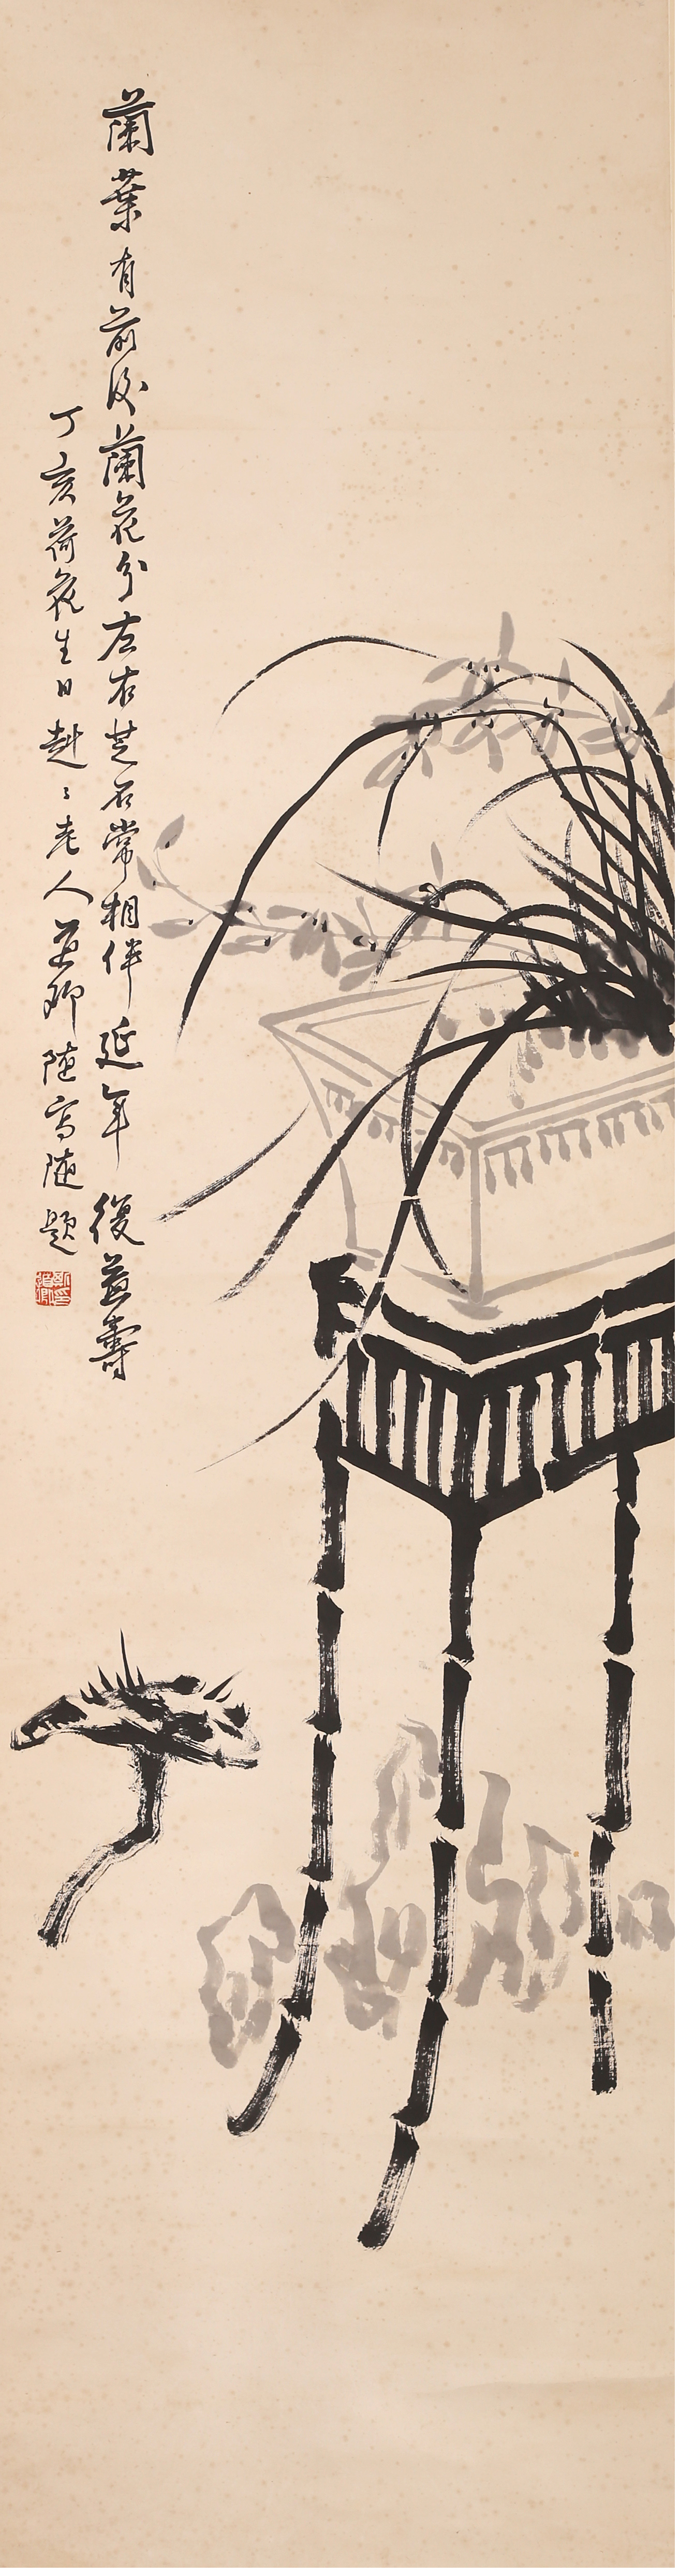 蘭葉有前後蘭花分左右芝石常相伴延年復益壽
丁亥荷花生日赳々老人道卿随寫随題